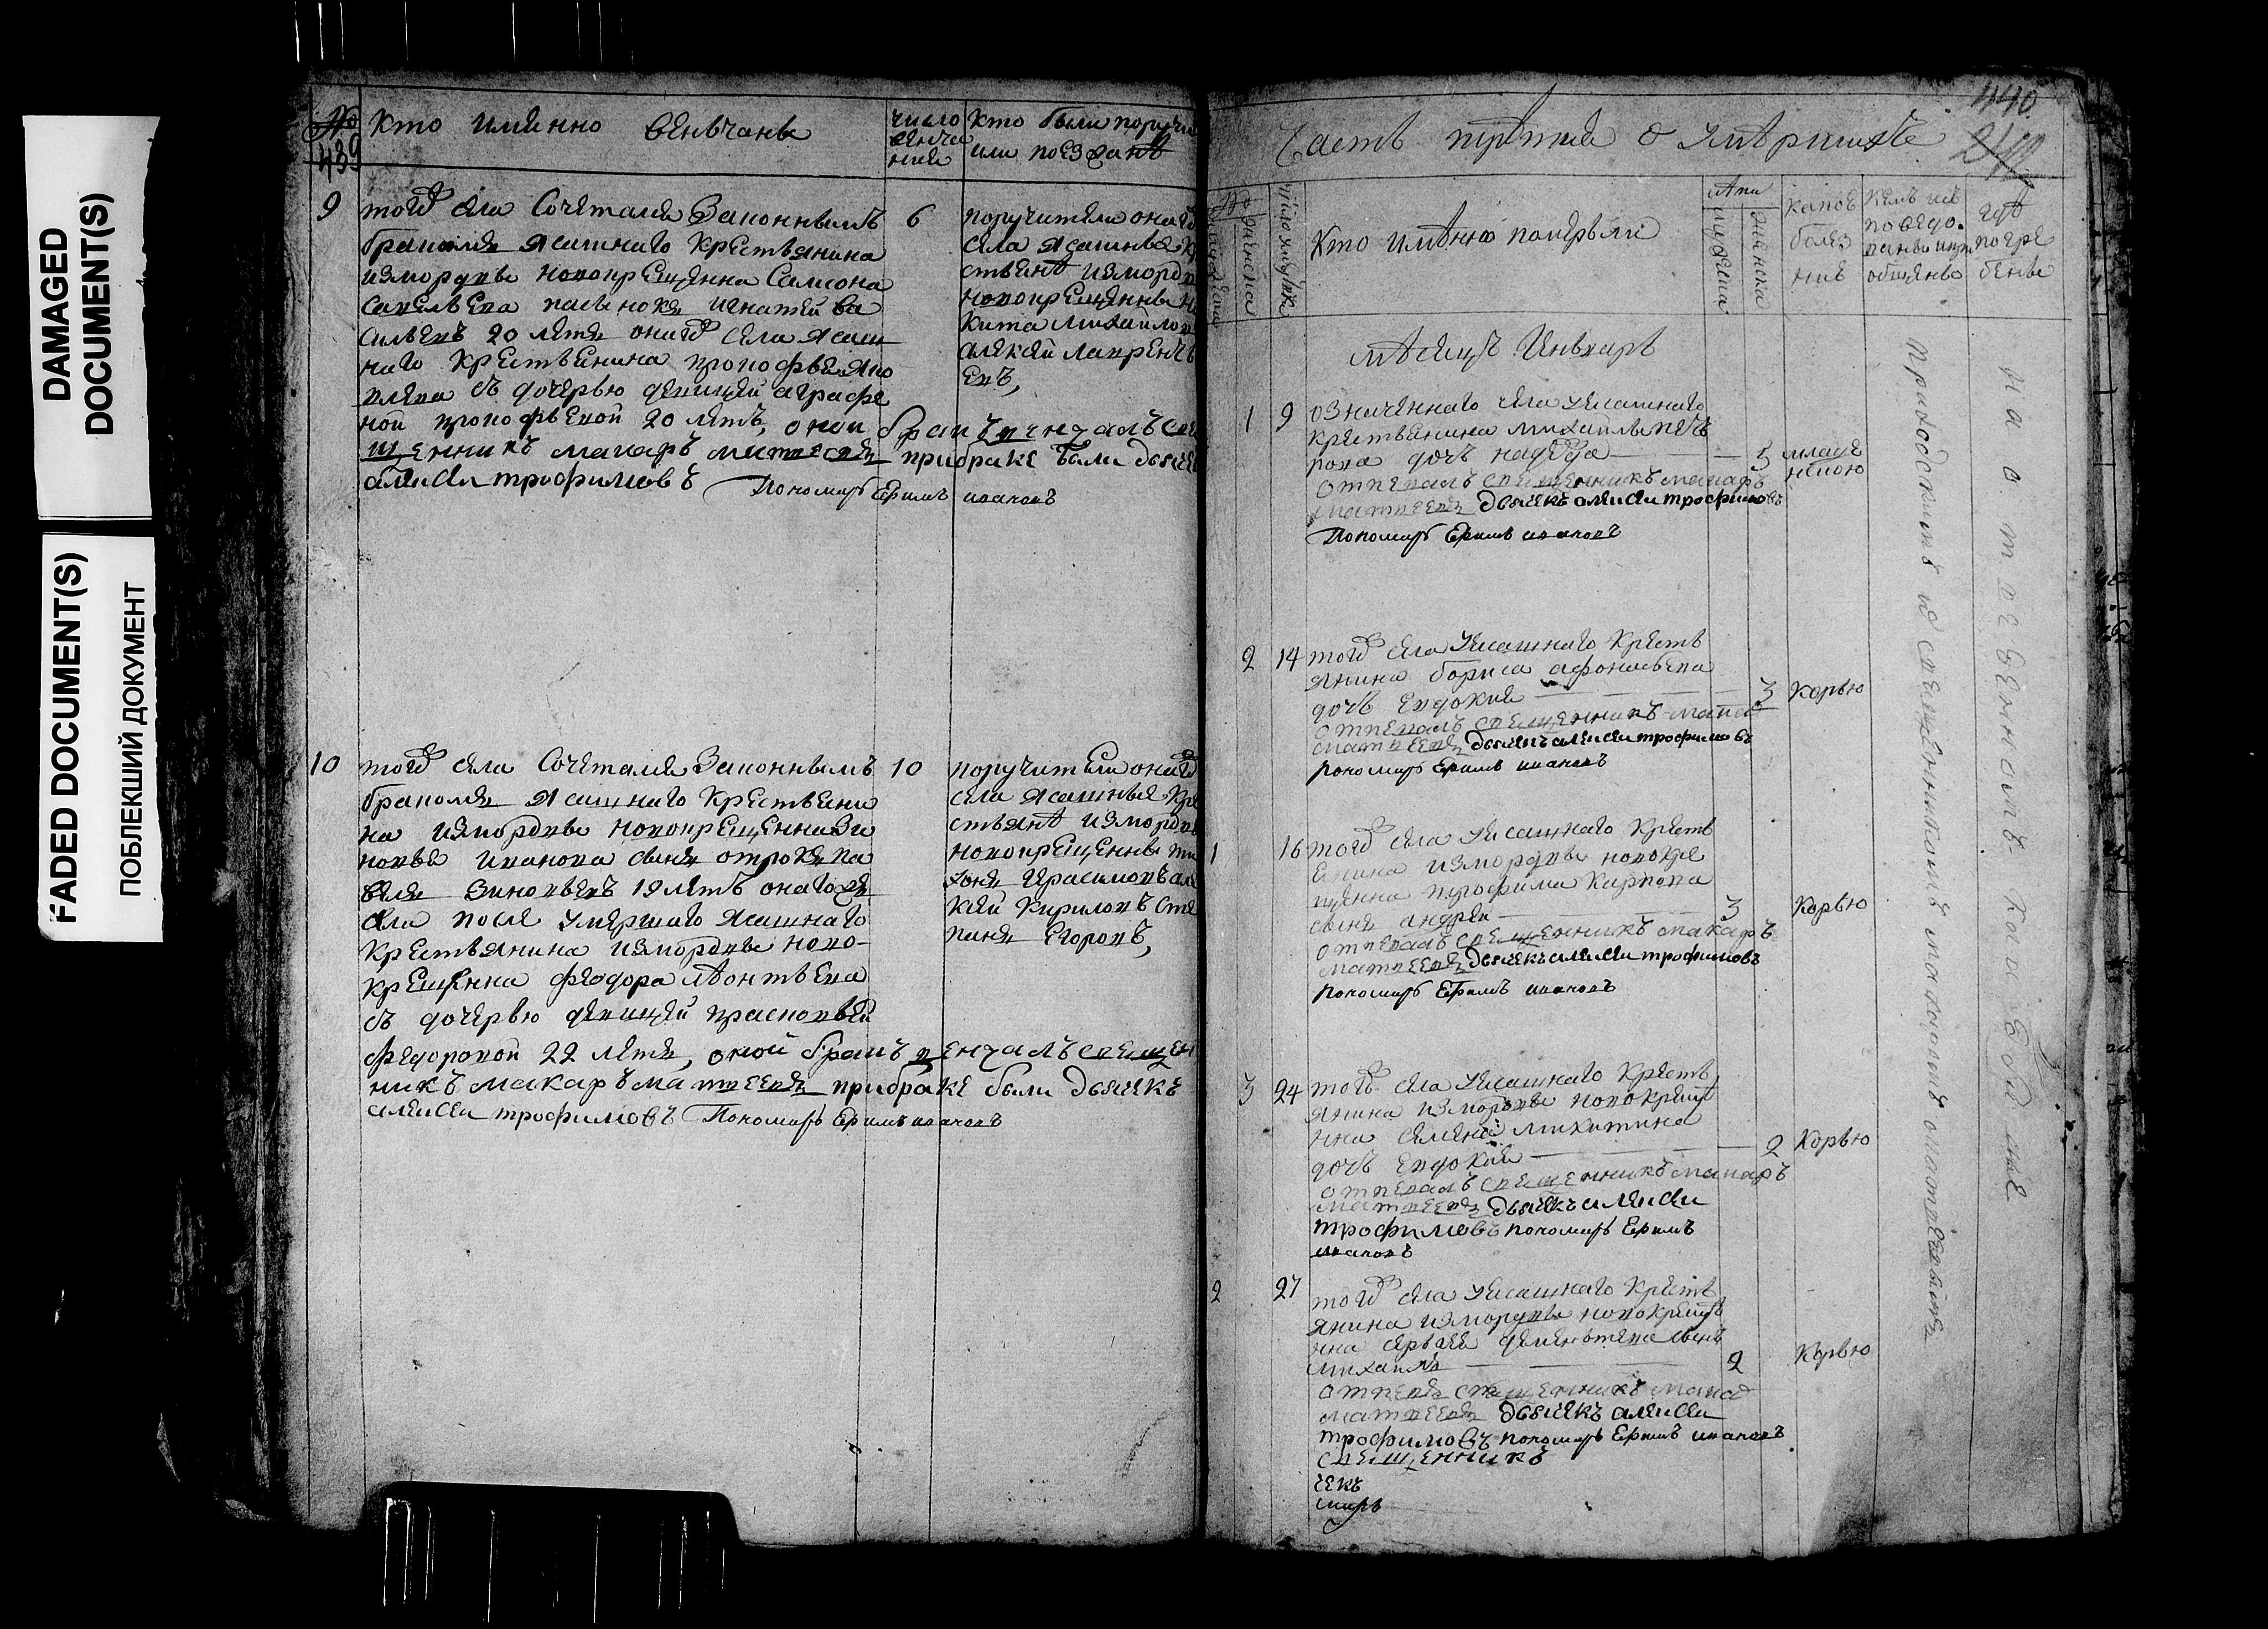 DAMAGED
DOCUMENT(S)
FADED DOCUMENT(S)
ПОБЛЕКШИЙ ДОКУМЕНТ
№
439
Кто имянно венчаны
число
венча
ния
Кто были поручи
или поезжанѣ
9
тогѡ села Сочетался Законнымъ
бракомъ Ясашнаго Крестьянина
измордвы новокрещенна Самсона
Савельева пасынокъ игнатей ва
сильевъ 20 летъ оногѡ села Ясаш
наго Крестьянина прокофья Яко
влева съ дочерью девицей аграфе
ной прокофьевой 20 летъ, оной бракъ венчалъ свя
щенникъ макаръ матвеевъ прибраке были дьячекъ
алексеи трофимовъ Пономарь Ефимъ ивановъ
6
поручители оногѡ
села ясашные Кр
стьянѣ измордв
новокрещенны ни
Кита михайлов
алексей лаврентьь
евъ,
10
тогѡ села Сочетался Законнымъ
бракомъ Ясашнаго Крестьяни
на измордвы новокрещенна Зи
новья иванова сынъ отрокъ ва
силей зиновьевъ 19 летъ оного же
села после умершаго Ясашнаго
Крестьянина измордвы ново-
крещенна феодора леонтьева
съ дочерью девицей прасковьей
федоровой 22 летъ, оной бракъ венчалъ священ
никъ макаръ матвеевъ прибраке были дьячекъ
алексеи трофимовъ Пономарь Ефимъ ивановъ
10
поручители оногѡ
села ясашные Кре
стьянѣ измордвы
новокрещенны ти
хонъ Герасимовъ але
ксей Кириловъ сте
панъ Егоровъ,
440
Часть третия о умершихъ
женска
число
Кто имянно померъли
лѣта
мужеска
женска
какою
болез
нию
кемъ ис
поведо.
ваны ипри
общены
гдѣ
погре
бены
мѣсяцъ Иньваръ
1
9
означеннаго села Ясашнаго
Крестьянина михаилы
дочь надежда
3
младе
нскою
отпевалъ священникъ макаръ
матвеевъ дьячекъ алексеи трофимовъ
Пономарь Ефимъ ивановъ
2
14
тогѡ села Ясашнаго Кресть
янина бориса афонасьева
дочь Евдокия
3
Корью
отпевалъ священникъ мака
матвеевъ дьячекъ алексеи трофимовъ
пономарь Ефимъ ивановъ
1
16
тогѡ села Ясашнаго Кресть
янина измордвы новокре
щенна трофима Карпова
сынъ андреи
3
Корью
отпевалъ священникъ макаръ
матвеевъ дьячекъ алексеи трофимовъ
пономарь Ефимъ ивановъ
3
24
тогѡ села Ясашнаго Кресть
янина измордвы новокреще
нна семена микитина
дочь Евдокия
2
Корью
отпевалъ священникъ макаръ
матвеевъ дьячекъ алексеи
трофимовъ пономарь Ефимъ
ивановъ
2
27
тогѡ села Ясашнаго Кресть
янина измордвы новокреще
нна сергея дементьева сынъ
михаила
2
Корью
отпевалъ священникъ мака
матвеевъ дьячекъ алексеи
трофимовъ пономарь Ефимъ ивановъ
священникъ
чекъ
марь
на отведенномъ кладбище